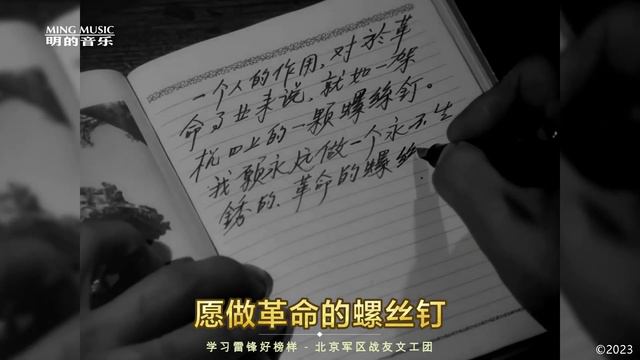 MING MUSIC
明的音乐
一个人的作用，对於革
命事业来说，就如一架
机器上的一颗螺絲钉。
我願永远做一个永不生
銹的、革命的螺絲
愿做革命的螺丝钉
学习雷锋好榜样 - 北京军区战友文工团
©2023